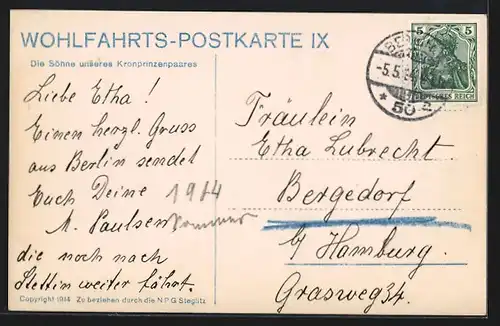 WOHLFAHRTS-POSTKARTE IX
Die Söhne unseres Kronprinzenpaares
Liebe Etha!
Einen herzl. Gruss
aus Berlin sendet
Euch Deine
M. Paulsen
die noch nach
Stettin weiter fährt.
1914
Sommer
Copyright 1914 Zu beziehen durch die NPG Steglitz
5 5
DEUTSCHES REICH
BERLIN
-5.5.
* 50
Fräulein
Etha Lubrecht
Bergedorf
b/ Hamburg.
Grasweg 34.